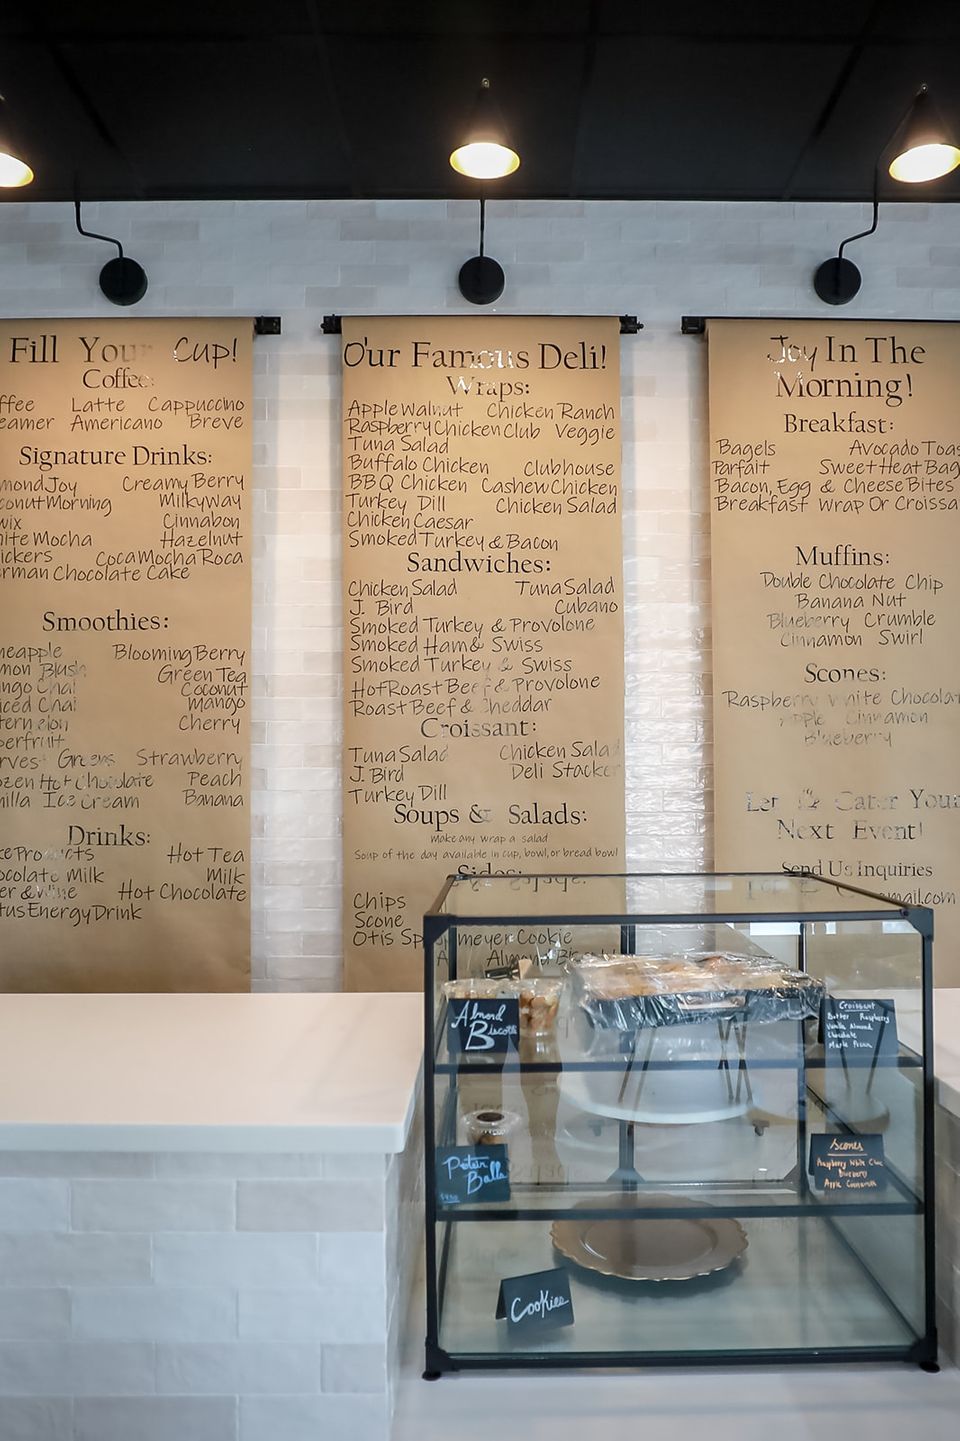 Fill Your Cup!
Coffee:
Latte Cappuccino
Americano Breve
Signature Drinks:
CreamyBerry
Milkyway
Cinnabon
Mocha Hazelnut
CocaMochaRoca
Chocolate Cake
Smoothies:
BloomingBerry
Blush Green Tea
Chai Coconut
Chai mango
Cherry
Greens Strawberry
Hot Chocolate Peach
Ice Cream Banana
Drinks:
Products Hot Tea
Milk Milk
& Wine Hot Chocolate
EnergyDrink
Our Famous Deli!
Wraps:
Apple Walnut Chicken Ranch
Raspberry Chicken Club Veggie
Tuna Salad
Buffalo Chicken Clubhouse
BBQ Chicken Cashew Chicken
Turkey Dill Chicken Salad
Chicken Caesar
Smoked Turkey & Bacon
Sandwiches:
Chicken Salad Tuna Salad
J. Bird Cubano
Smoked Turkey & Provolone
Smoked Ham & Swiss
Smoked Turkey & Swiss
Hot Roast Beef & Provolone
Roast Beef & Cheddar
Croissant:
Tuna Salad Chicken Salad
J. Bird Deli Stacker
Turkey Dill
Soups & Salads:
Make any wrap a salad
Soup of the day available in cup, bowl, or bread bowl
Sides:
Chips
Scone
Otis Spunkmeyer Cookie
Almond
Joy In The
Morning!
Breakfast:
Bagels Avocado
Parfait Sweet Heat
Bacon, Egg & Cheese Bites
Breakfast Wrap Or
Muffins:
Double Chocolate Chip
Banana Nut
Blueberry Crumble
Cinnamon Swirl
Scones:
Raspberry White
Apple Cinnamon
Blueberry
Let Us Cater Your
Next Event!
Send Us Inquiries
gmail.com
Almond
Biscotti
Croissant
Butter Raspberry
Vanilla Almond
Chocolate
Maple Pecan
Protein
Balls
Scones
Raspberry White Choc
Blueberry
Apple Cinnamon
Cookies